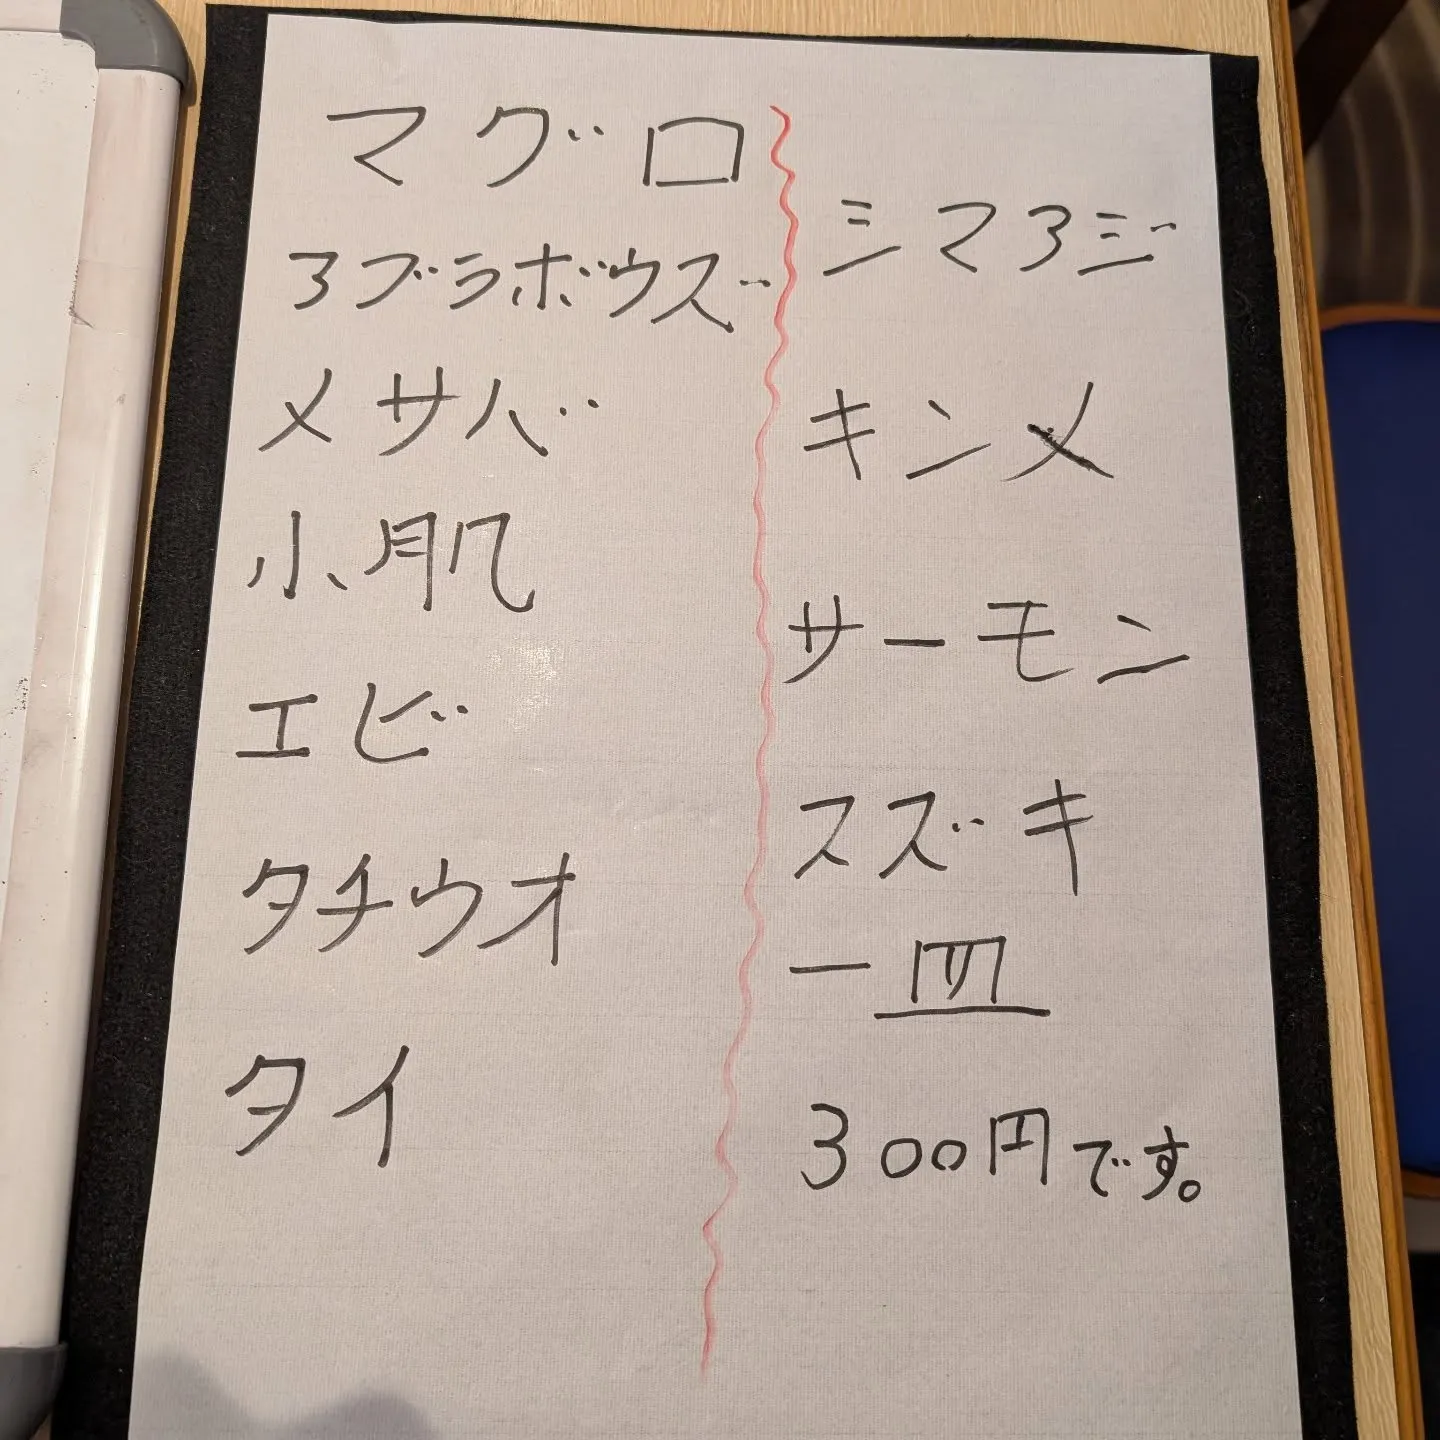 マグロ
アブラボウズ
メサバ
小肌
エビ
タチウオ
タイ
シマアジ
キンメ
サーモン
スズキ
一皿
300円です。